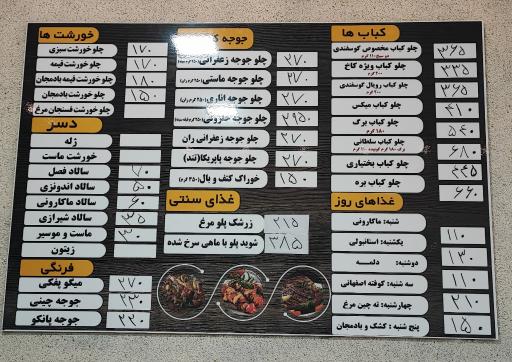 کباب ها
چلو کباب مخصوص گوسفندی ۳۶۵
چلو کباب ویژه کاخ ۳۳۵
چلو کباب رویال گوسفندی ۳۶۵
چلو کباب میکس ۴۱۰
چلو کباب برگ ۵۴۰
۱۸۰ گرم
چلو کباب سلطانی ۶۸۰
چلو کباب بختیاری ۴۴۵
چلو کباب بره ۶۶۰
غذاهای روز
شنبه: ماکارونی ۱۱۰
یکشنبه: استانبولی ۱۳۰
دوشنبه: دلمـــه ۱۱۰
سه شنبه: کوفته اصفهانی ۲۱۰
چهارشنبه: ته چین مرغ
پنج شنبه: کشک و بادمجان ۱۵۰
جوجه
چلو جوجه زعفرانی ۲۷۰
چلو جوجه ماستی ۲۷۰
چلو جوجه اناری ۲۷۰
چلو جوجه ۲۹۵۰
چلو جوجه زعفرانی ران ۲۷۰
چلو جوجه پاپریکا(تند) ۲۷۰
خوراک کتف و بال ۱۵۰
غذای سنتی
زرشک پلو مرغ ۲۱۵
شوید پلو با ماهی سرخ شده ۳۸۵
خورشت ها
چلو خورشت سبزی ۱۷۰
چلو خورشت قیمه ۱۷۰
چلو خورشت قیمه بادمجان ۱۸۰
چلو خورشت بادمجان ۱۵۰
چلو خورشت فسنجان مرغ
دسر
ژله
خورشت ماست
سالاد فصل ۷۰
سالاد اندونزی ۵۰
سالاد ماکارونی ۶۰
سالاد شیرازی ۳۵
ماست و موسیر ۳۰
زیتون
فرنگی
میگو پفکی ۲۷۰
جوجه چینی ۲۳۰
جوجه پانکو ۲۳۰